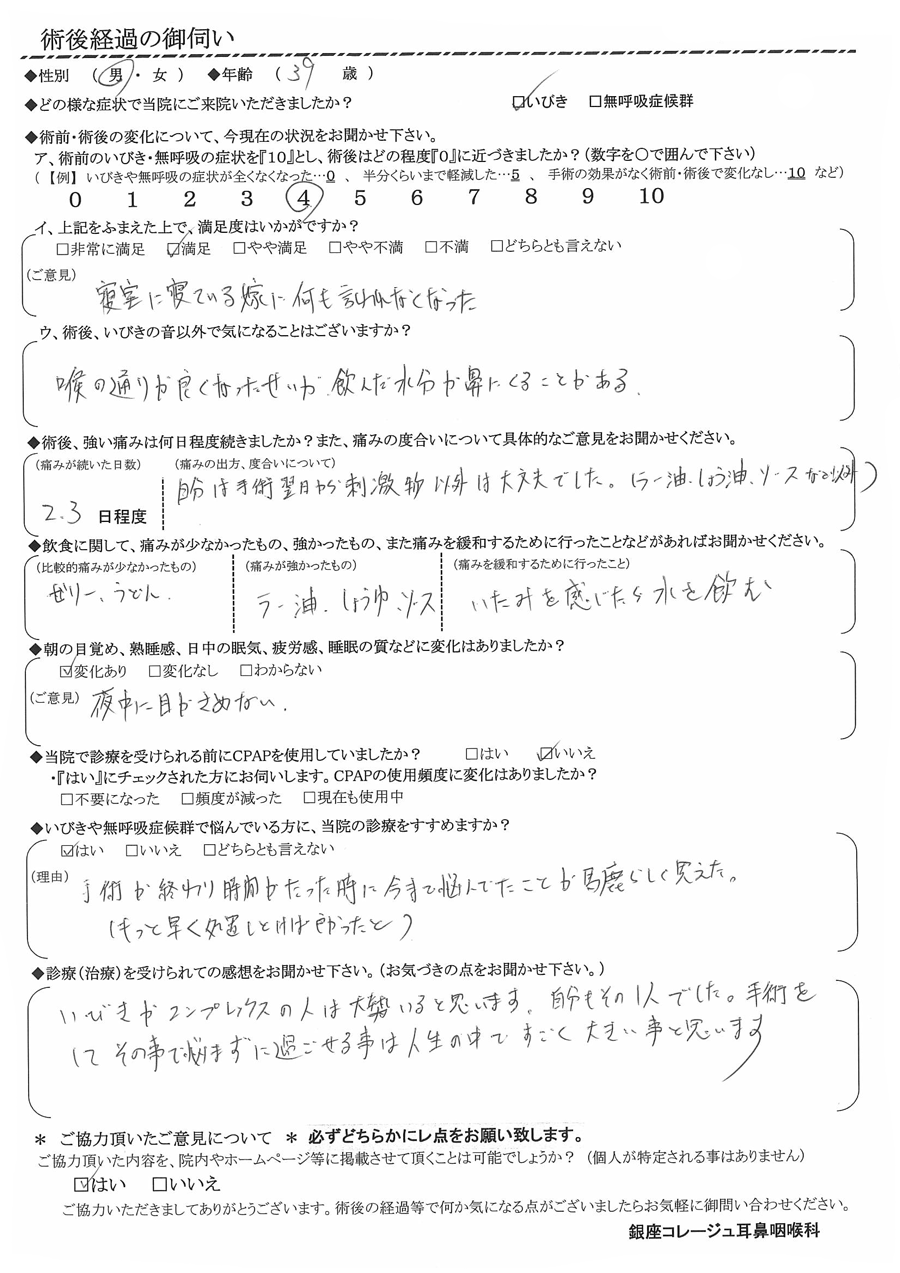 術後経過の御伺い
◆性別 （ 男 ・ 女 ） ◆年齢 （ 39 歳 ）
◆どの様な症状で当院にご来院いただきましたか？ ☑いびき □無呼吸症候群
◆術前・術後の変化について、今現在の状況をお聞かせ下さい。
ア、術前のいびき・無呼吸の症状を『10』とし、術後はどの程度『0』に近づきましたか？（数字を○で囲んで下さい）
（ 【例】 いびきや無呼吸の症状が全くなくなった…0 、 半分くらいまで軽減した…5 、 手術の効果がなく術前・術後で変化なし…10 など）
0 1 2 3 4 5 6 7 8 9 10
イ、上記をふまえた上で、満足度はいかがですか？
□非常に満足 ☑満足 □やや満足 □やや不満 □不満 □どちらとも言えない
（ご意見）
寝室に寝ている嫁に何も言われなくなった
ウ、術後、いびきの音以外で気になることはございますか？
喉の通りが良くなったせいか、飲んだ水分が鼻にくることがある.
◆術後、強い痛みは何日程度続きましたか？また、痛みの度合いについて具体的なご意見をお聞かせください。
（痛みが続いた日数） （痛みの出方、度合いについて）
2.3 日程度 自分は手術翌日から刺激物以外は大丈夫でした。（ラー油、しょう油、ソースなど以外）
◆飲食に関して、痛みが少なかったもの、強かったもの、また痛みを緩和するために行ったことなどがあればお聞かせください。
（比較的痛みが少なかったもの） （痛みが強かったもの） （痛みを緩和するために行ったこと）
ゼリー、うどん. ラー油、しょうゆ、ソース いたみを感じたら水を飲む
◆朝の目覚め、熟睡感、日中の眠気、疲労感、睡眠の質などに変化はありましたか？
☑変化あり □変化なし □わからない
（ご意見） 夜中に目がさめない.
◆当院で診療を受けられる前にCPAPを使用していましたか？ □はい ☑いいえ
・『はい』にチェックされた方にお伺いします。CPAPの使用頻度に変化はありましたか？
□不要になった □頻度が減った □現在も使用中
◆いびきや無呼吸症候群で悩んでいる方に、当院の診療をすすめますか？
☑はい □いいえ □どちらとも言えない
（理由） 手術が終わり時間がたった時に今まで悩んでたことが馬鹿らしく思えた。
（もっと早く処置しとけば良かったと）
◆診療（治療）を受けられての感想をお聞かせ下さい。（お気づきの点をお聞かせ下さい。）
いびきがコンプレックスの人は大勢いると思います。自分もその1人でした。手術を
して その事で悩まずに過ごせる事は人生の中ですごく大きい事と思います
＊ ご協力頂いたご意見について ＊ 必ずどちらかにレ点をお願い致します。
ご協力頂いた内容を、院内やホームページ等に掲載させて頂くことは可能でしょうか？ （個人が特定される事はありません）
☑はい □いいえ
ご協力いただきましてありがとうございます。術後の経過等で何か気になる点がございましたらお気軽に御問い合わせください。
銀座コレージュ耳鼻咽喉科